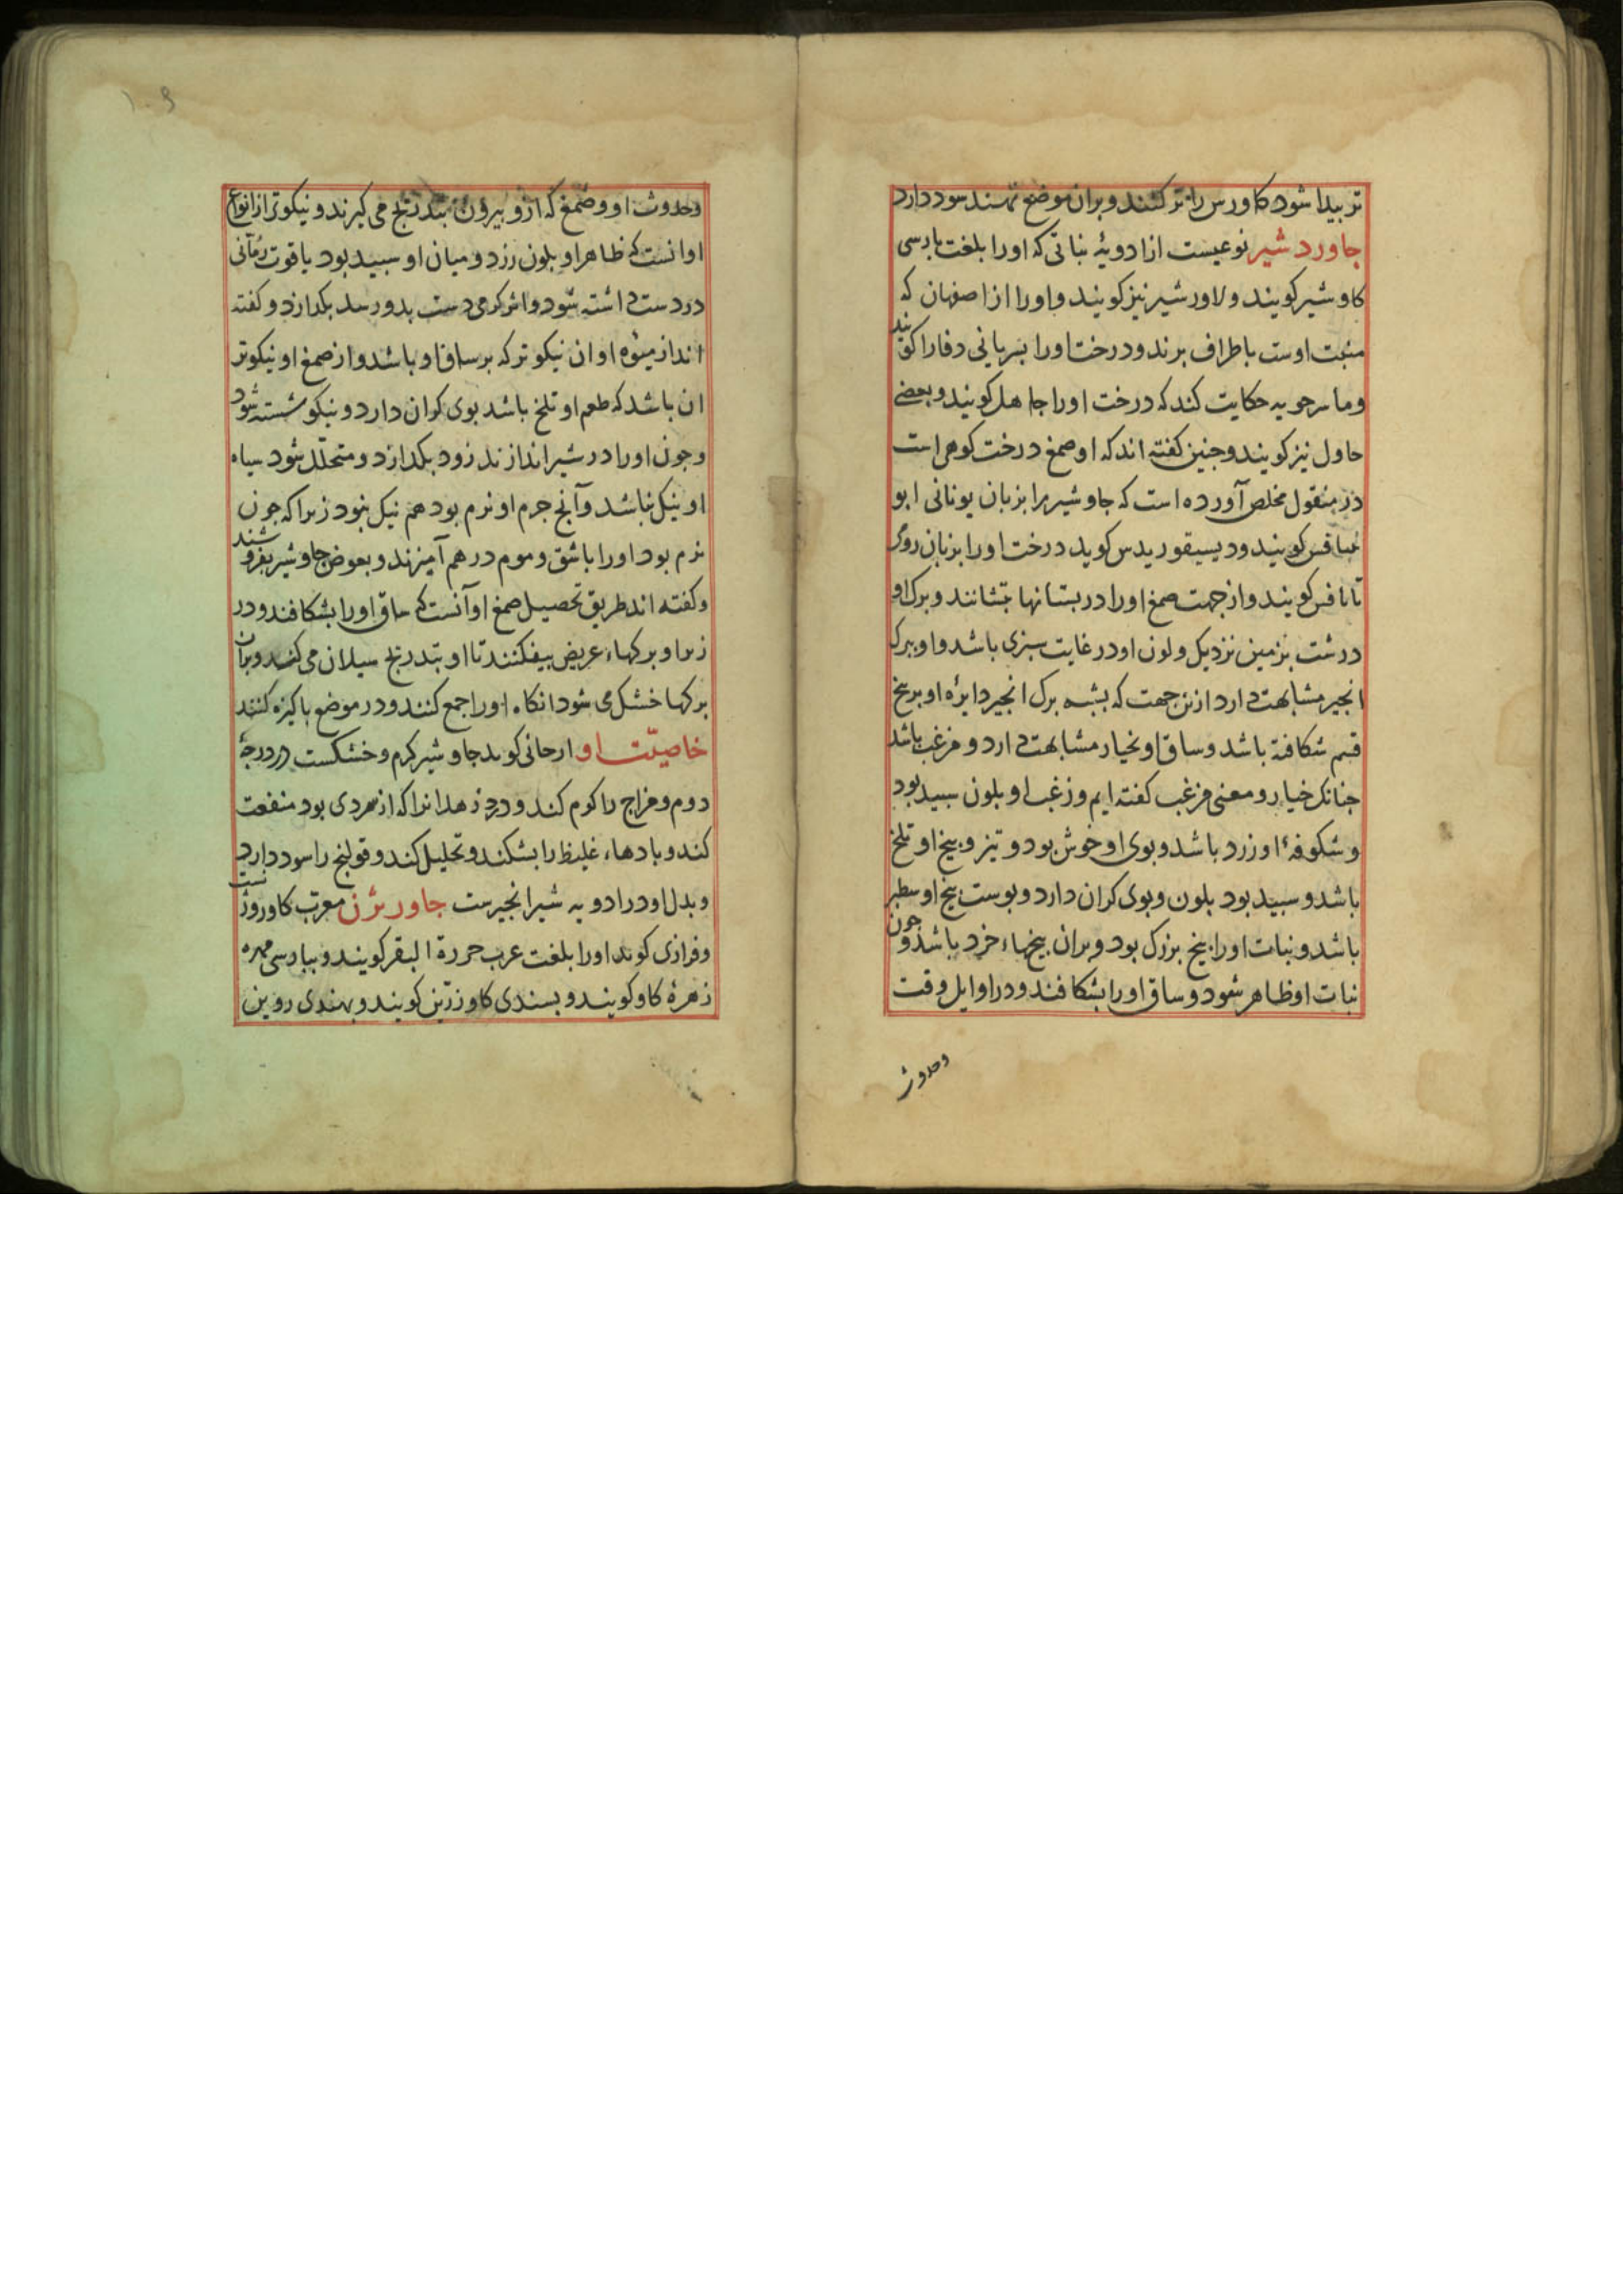 تر بیدا شود کاورس را تر کنند و بران موضع نهند سود دارد
جاورد شیر نوعیست از ادویهٔ نباتی که او را بلغت بارسی
کاو شیر کویند ولاور شیر نیز کویند و او را از اصفهان که
منبت اوست باطراف برند و درخت او را بسریانی دفارا کویند
وماسرجویه حکایت کند که درخت او را جاهل کویند و بعضی
حاول نیز کویند و جنین کفته اند که او صمغ درخت کوهی است
در منقول مخلص آورده است که جاوشیر را بزبان یونانی ابو
عیاقس کویند و دیسیقوریدس کوید درخت او را بزبان رومی
تاناقس کویند و از جهت صمغ او را در بستانها بنشانند و برک او
درشت بزمین نزدیک ولون او در غایت سبزی باشد و او ببرک
انجیر مشابهت دارد ازین جهت که بشبه برک انجیر دایرهٔ او بر بنج
قسم شکافته باشد و ساق او بخیار مشابهت دارد و مزغب باشد
جنانک خیار و معنی مزغب کفته ایم و زغب او بلون سبید بود
و شکوفهٔ او زرد باشد و بوی او خوش بود و تیز و بیخ او تلخ
باشد و سبید بود بلون و بوی کران دارد و بوست بیخ او سطبر
باشد و نبات او را بیخ بزرک بود و بران بیخهاء خرد باشد و جون
نبات او ظاهر شود و ساق او را بشکافند و در اوایل وقت
وحدوث
وحدوث او وصمغ که ازو بیرون بتدریج می کیرند و نیکوتر از انواع
او انست که ظاهر او بلون زرد و میان او سبید بود یا قوت رمانی
در دست داشته شود و اثر کرمی دست بدو رسد بکدازد و کفته
اند از میوه او ان نیکوتر که بر ساق او باشد و از صمغ او نیکوتر
ان باشد که طعم او تلخ باشد بوی کران دارد و نیکو شسته شود
و جون او را در شیر اندازند زود بکدازد و متحلّل شود سیاه
او نیک نباشد و آنج جرم او نرم بود هم نیک نبود زیرا که جون
نرم بود او را باشق و موم در هم آمیزند و بعوض جاوشیر بفروشند
و کفته اند طریق تحصیل صمغ او آنست که ساق او را بشکافند و در
زیر او برکهاء عریض بیفکنند تا او بتدریج سیلان می کند و بران
برکها خشک می شود انکاه او را جمع کنند و در موضع باکیزه کنند
خاصیّت او ارجانی کوید جاوشیر کرم و خشکست در درجهٔ
دوم و مزاج را کرم کند و درد زهدانرا که از سردی بود منفعت
کند و بادهاء غلیظ را بشکند و تحلیل کند و قولنج را سود دارد
و بدل او در ادویه شیر انجیرست جاور ژن معرب کاوروزنست
و فرازی کوید او را بلغت عرب حررة البقر کویند و ببارسی مهره
زهرهٔ کاو کویند و بسندی کاو زرّین کویند و بهندی روین